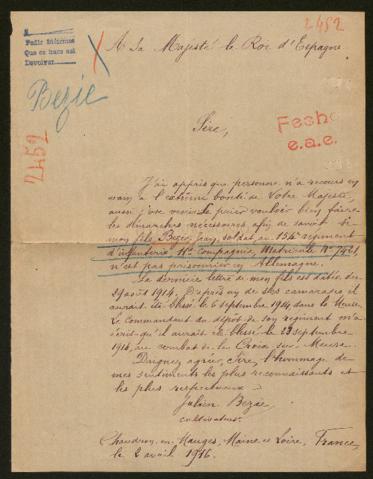 2452
A Sa Majesté le Roi d'Espagne
Pedir informes
Que se hace así
Devolver
Bezie
Sire,
Fecho
e.a.e.
2452
J'ai appris que personne n'a recours en
vain à l'extrême bonté de Votre Majesté,
aussi j'ose venir la prier vouloir bien faire
les démarches nécessaires afin de savoir si
mon fils Bezie, Jean, soldat au 154e régiment
d'infanterie 11e compagnie Matricule No 7421,
n'est pas prisonnier en Allemagne.
La dernière lettre de mon fils est datée du
29 août 1914. D'après un de ses camarades il
aurait été blessé le 6 septembre 1914 dans la Meuse.
Le commandant du dépôt de son régiment m'a
écrit qu'il aurait été blessé le 23 septembre
1914, au combat de la Croix sur Meuse.
Daignez agréer, Sire, l'hommage de
mes sentiments les plus reconnaissants et
les plus respectueux.
Julien Bezie
cultivateur
Chaudron-en-Mauges, Maine et Loire, France,
le 2 avril 1916.